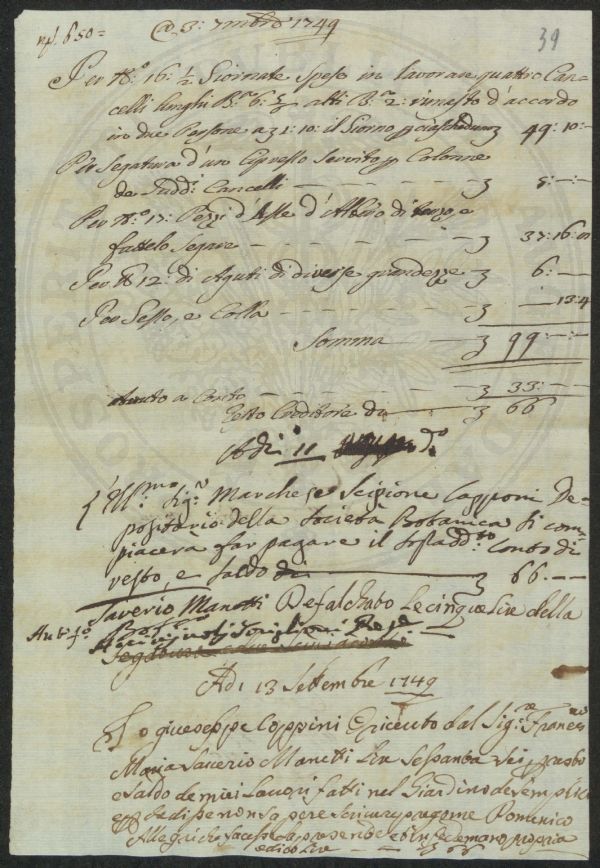 @ 3: 7mbre 1749
39
Per N.º 16: ½ Giornate speso in lavorare quattro Can-
celli lunghi B.ª 6: ½ alti B.ª 2: rimasto d'accordo
in due Persone a 31: 10: il Giorno p ciascheduno 3 49: 10:-
Per Segatura d'un Cipresso servito p Colonne
de Sudd.i Cancelli - - - - - 3 5:-:-
Per N.º 17: Pezzi d'Asse d'Albero di terzo, e
fattelo segare - - - - - - 3 37:16:
Per 12: di Aguti di diverse grandezze - 3 6:-
Per Gesso, e Colla - - - - - 3 -13:4
Somma - 3 99:-
auuto a Conto - - - - - 3 33:-
Resto Creditore da - 3 66
Adi 11 d.º
Ill.mo Sig.r Marchese Scipione Capponi De-
positario della Società Botanica si com-
piacerà far pagare il Conto di
resto, e saldo di - 3 66:-
Saverio Manetti Defalchato Le cinque Lire della
Adi 13 Settembre 1749
Io giuseppe Coppini Riceuto dal Sig.re Frances
Maria Saverio Manetti Lire Sessanta Sei p resto
e saldo de miei Lavori fatti nel Giardino de Semplici
e p non sapere scriuere prego me Domenico
Allegri che facessi la presente mano propria
e dico Lire - 3 66